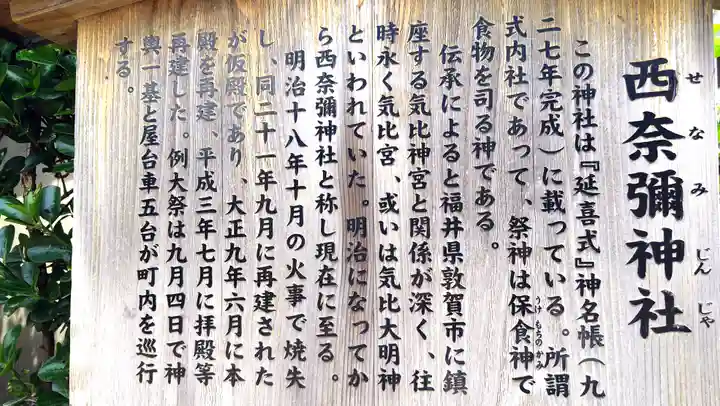 西奈彌神社
せなみじんじゃ
この神社は『延喜式』神名帳(九
二七年完成)に載っている。所謂
式内社であって、祭神は保食神で
うけもちのかみ
食物を司る神である。
伝承によると福井県敦賀市に鎮
座する気比神宮と関係が深く、往
時永く気比宮、或いは気比大明神
といわれていた。明治になってか
ら西奈彌神社と称し現在に至る。
明治十八年十月の火事で焼失
し、同二十一年九月に再建された
が仮殿であり、大正九年六月に本
殿を再建、平成三年七月に拝殿等
再建した。例大祭は九月四日で神
輿一基と屋台車五台が町内を巡行
する。